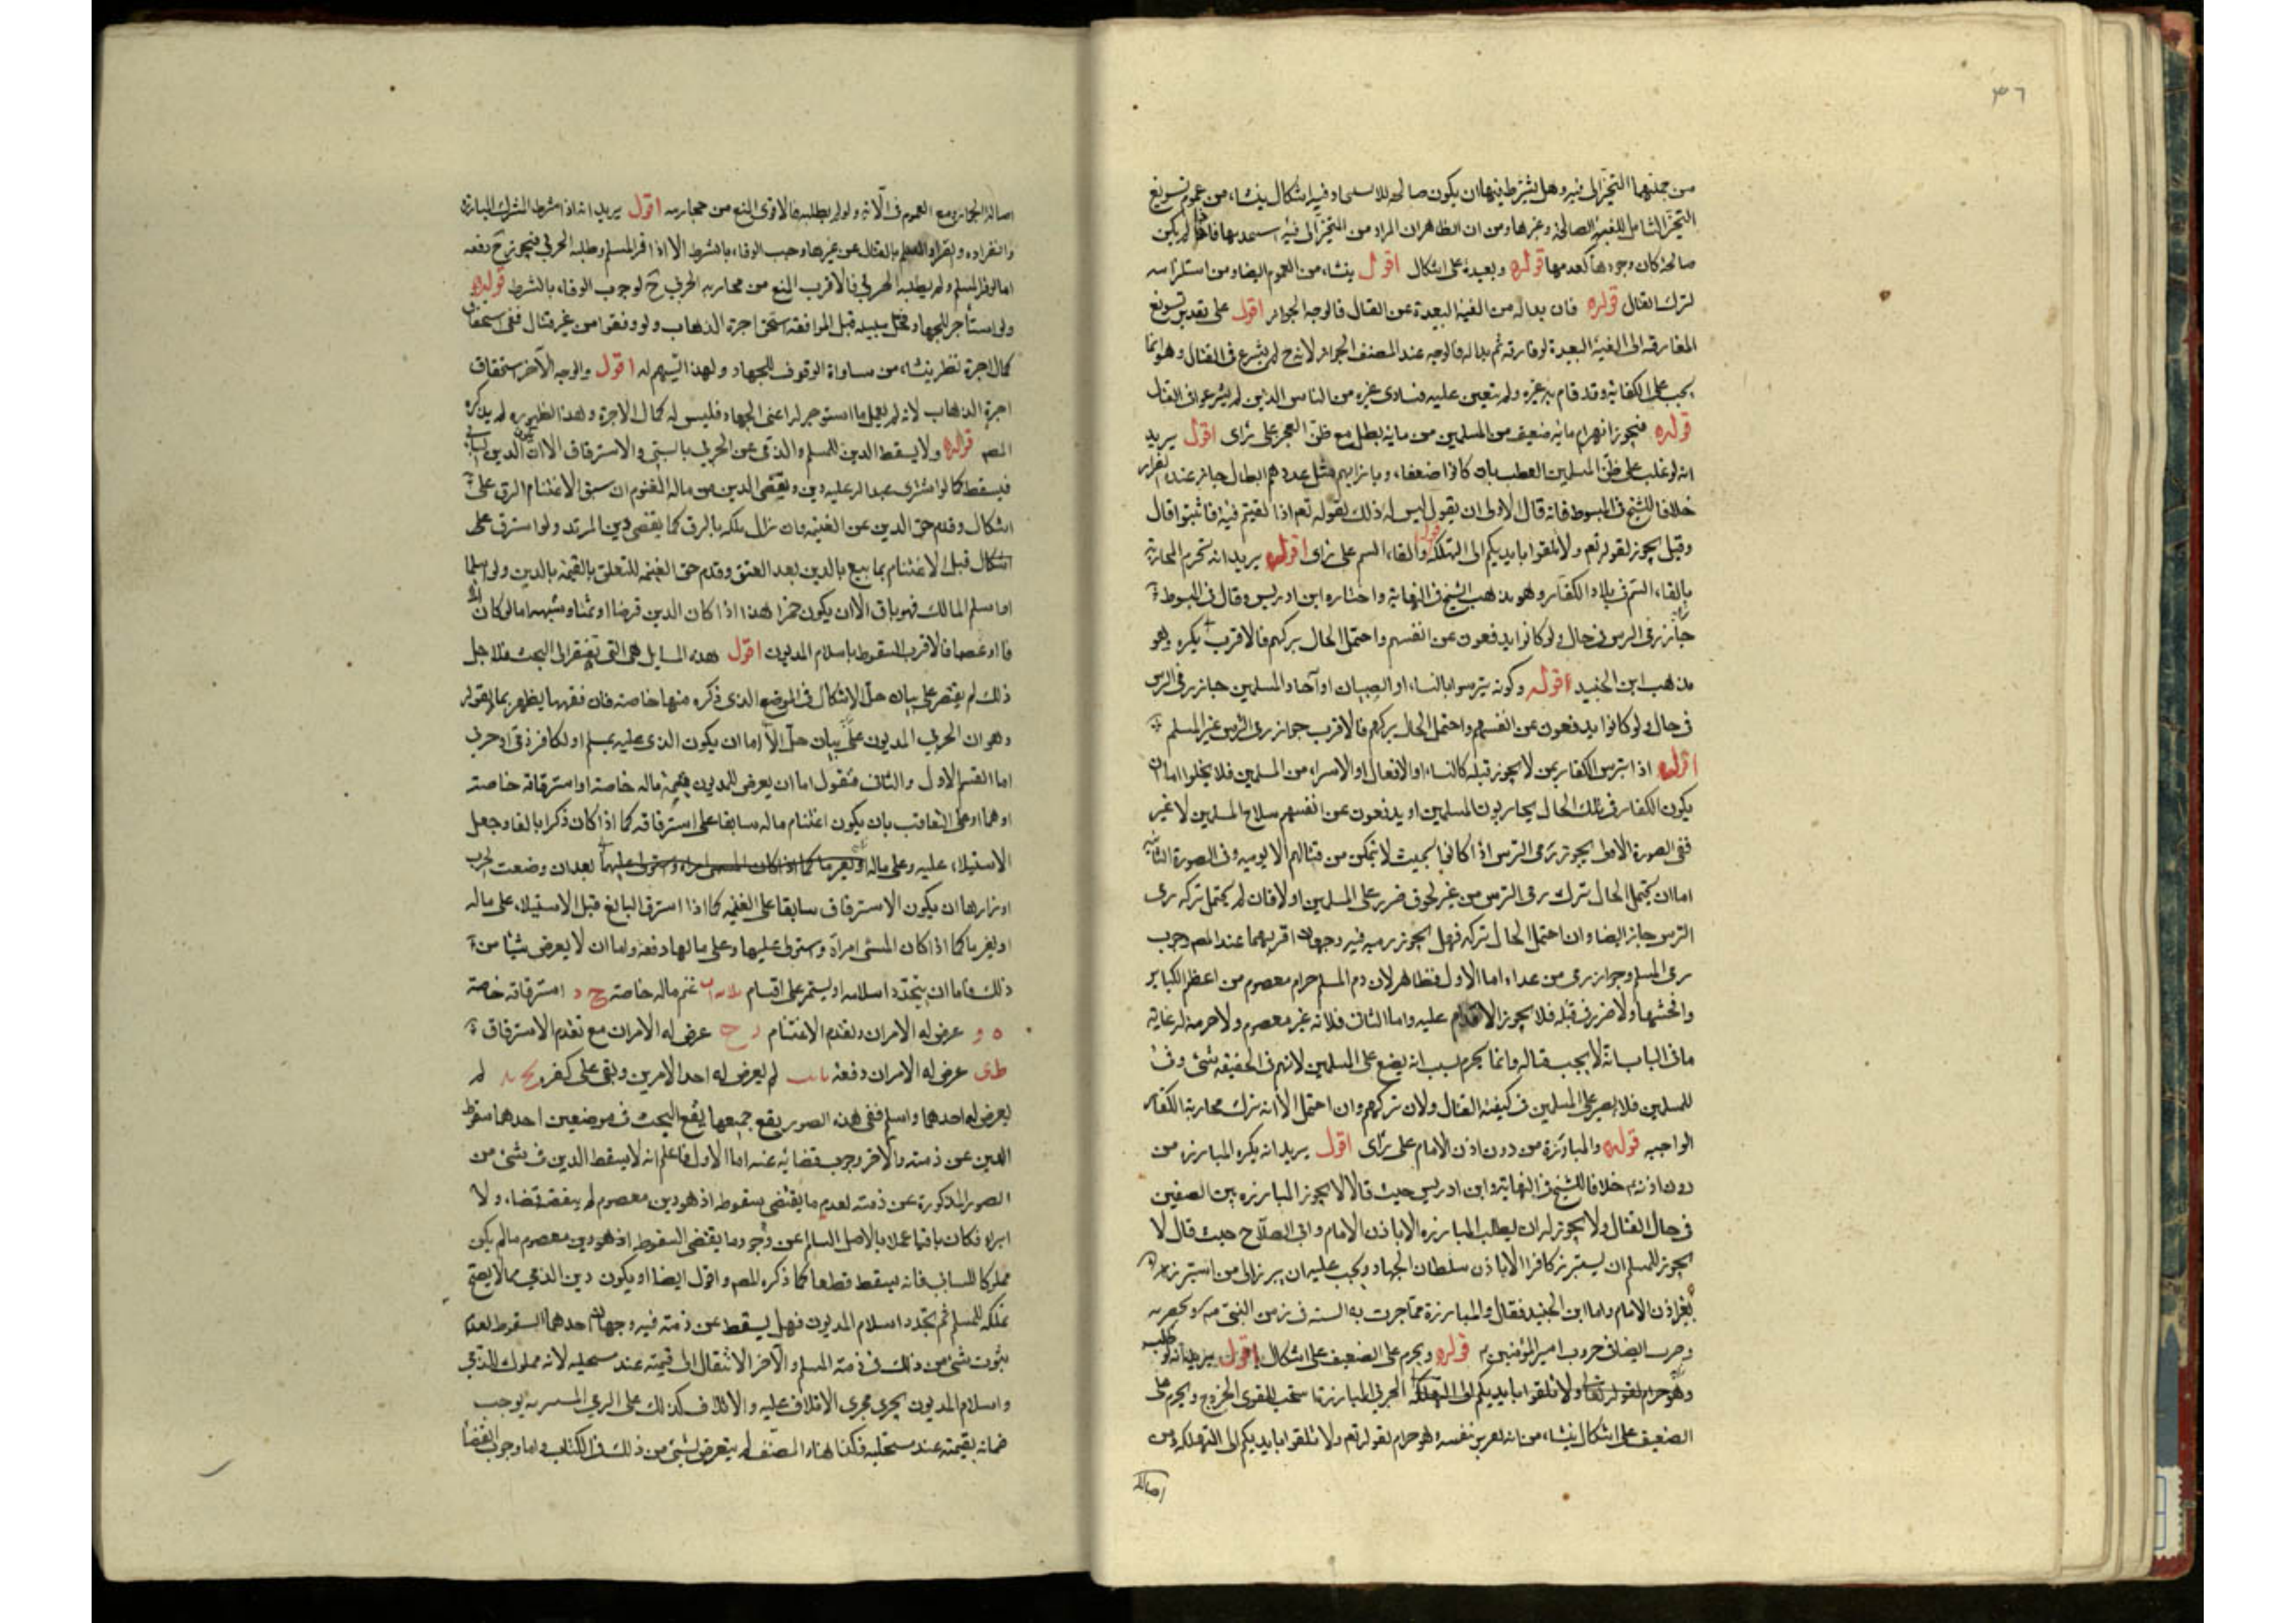 ٣٦
من جملتهما التحيز الى فئة وهل يشترط فيها ان يكون صالحة للاستنجاد فيه اشكال ينشاء من عموم تسويغ
التحيز الشامل للفئة الصالحة وغيرها ومن ان الظاهر ان المراد من التحيز الى فئة استنجد بها فاذا لم يكن
صالحة كان وجودها كعدمها قوله وبعيدة على اشكال اقول ينشاء من العموم ايضا ومن استلزامه
لترك القتال قوله فان بدا له من الفئة البعيدة عن القتال فالوجه الجواز اقول على تقدير تسويغ
المفارقة الى الفئة البعيدة لو فارقه ثم بدا له فالوجه عند المصنف الجواز لانه ح لم يشرع فى القتال وهو انما
يجب على الكفاية وقد قام به غيره ولم يتعين عليه فساوى غيره من الناس الذين لم يشرعوا فى القتال
قوله فيجوز انهزام ماية ضعيف من المسلمين من ماية بطل مع ظن العجز على راى اقول يريد
انه لو غلب على ظن المسلمين العطب بان كانوا ضعفاء وبازائهم مثل عددهم ابطال جاز عنده الفرار
خلافا للشيخ فى المبسوط فانه قال الاولى ان يقول ليس له ذلك لقوله تعم اذا لقيتم فئة فاثبتوا قال
وقيل يجوز لقوله تعم ولا تلقوا بايديكم الى التهلكة قوله والقاء السم على راى اقول يريد انه تحرم المحاربة
بالقاء السم فى بلاد الكفار وهو مذهب الشيخ فى النهاية واختاره ابن ادريس وقال فى المبسوط
جايز رمى الترس فى حال ولو كانوا يدفعون عن انفسهم واحتمل الحال تركهم فالاقرب يكره وهو
مذهب ابن الجنيد قوله وكونه تترسوا بالنساء او الصبيان او آحاد المسلمين جاز رمى الترس
فى حال ولو كانوا يدفعون عن انفسهم واحتمل الحال تركهم فالاقرب جواز رمى الترس غير المسلم
اقول اذا تترس الكفار بمن لا يجوز قتله كالنساء او الاطفال او الاسراء من المسلمين فلا يخلوا اما ان
يكون الكفار فى تلك الحال يحاربون المسلمين او يدفعون عن انفسهم سلاح المسلمين لا غير
ففى الصورة الاولى يجوز رمى الترس اذا كانوا بحيث لا يتمكن من قتالهم الا برميه وفى الصورة الثانية
اما ان يحتمل الحال ترك رمى الترس من غير لحوق ضرر على المسلمين او لا فان لم يحتمل تركه رمى
الترس جاز ايضا وان احتمل الحال تركه فهل يجوز رميه فيه وجهان اقربهما عند المص وجوب
رمى المسلم وجواز رمى من عداه اما الاول فظاهر لان دم المسلم حرام معصوم من اعظم الكباير
وافحشها ولا ضرر فى قتله فلا يجوز الاقدام عليه واما الثانى فلانه غير معصوم ولا حرمة له غاية
ما فى الباب انه لا يجب قتاله وانما يحرم لسبب انه يضع على المسلمين لانهم فى الحقيقة شىء وفى
للمسلمين فلا يعير على المسلمين فى كيفية القتال ولان تركهم وان احتمل الا انه ترك محاربة الكفار
الواجبه قوله والمبارزة من دون اذن الامام على راى اقول يريد انه يكره المبارزة من
دون اذنه خلافا للشيخ فى النهاية وابن ادريس حيث قالا لا يجوز المبارزه بين الصفين
فى حال القتال ولا يجوز له ان يطلب المبارزه الا باذن الامام وابى الصلاح حيث قال لا
يجوز للمسلم ان يستبرز كافرا الا باذن سلطان الجهاد ويجب عليه ان يبرز الى من استبرزه
بغير اذن الامام واما ابن الجنيد فقال والمبارزة مما جرت به السنة فى زمن النبى ص وبحضرته
وجرت ايضا فى حروب امير المؤمنين ع قوله ويحرم على الضعيف على اشكال اقول يريد انه لو طلب
وهو حرام لقوله تعالى ولا تلقوا بايديكم الى التهلكة الحربى المبارزة استحب للقوى الخروج ويحرم على
الضعيف على اشكال ينشاء من انه تغرير بنفسه وهو حرام لقوله تعم ولا تلقوا بايديكم الى التهلكة ومن
اصالة
اصالة الجواز ومع العموم فى الآية ولو لم يطلبها فالاقوى المنع من محاربته اقول يريد انه اذا شرط المشرك المبارزة
وانفراده وبقراره المسلم بالقتال عن غيرها وجب الوفاء بالشرط الا اذا فر المسلم وطلبه الحربى فيجوز ح دفعه
اما لو فر المسلم ولم يطلبه الحربى فالاقرب المنع من محاربة الحربى ح لوجوب الوفاء بالشرط قوله
ولو استأجر للجهاد فخلى سبيله قبل المواقفة استحق اجرة الذهاب ولو وقفوا من غير قتال ففى استحقاق
كمال اجرة نظر ينشاء من مساواة الوقوف للجهاد ولهذا يسهم له اقول والوجه الآخر استحقاق
اجرة الذهاب لانه لم يعمل ما استوجر له اعنى الجهاد فليس له كمال الاجرة ولهذا لظهوره لم يذكره
المص قوله ولا يسقط الدين للمسلم والذمى عن الحربى بالسبى والاسترقاق الا ان يكون الدين للسابى
فيسقط كما لو اشترى عبدا له عليه دين ويقضى الدين من ماله المغنوم ان سبق الاغتنام الرق على
اشكال وقدم حق الدين عن الغنيمة وان زال ملكه بالرق كما يقضى دين المرتد ولو استرق على
اشكال قبل الاغتنام بما بيع بالدين بعد العتق وقدم حق الغنيمة للتعلق بالقيمة بالدين ولو اسلما
او اسلم المالك فهو باق الا ان يكون خمرا هذا اذا كان الدين قرضا او ثمنا وشبههما اما لو كان اتلا
فا او غصبا فالاقرب السقوط باسلام المديون اقول هذه المسايل هى التى تفتقر الى البحث فلاجل
ذلك لم يقتصر على بيان حل الاشكال فى الموضع الذى ذكره منها خاصة فان فقهها يظهر بما نقوله
وهو ان الحربى المديون على بيان حل الا اما ان يكون الذى عليه لمسلم او لكافر ذمى او حربى
اما القسم الاول والثانى فنقول اما ان يعرض للمديون غنيمة ماله خاصة او استرقاقه خاصته
او هما او على التعاقب بان يكون اغتنام ماله سابقا على استرقاقه كما اذا كان ذكرا بالغا وجعل
الاستيلاء عليه وعلى ماله بعد ان وضعت الحرب
اوزارها ان يكون الاسترقاق سابقا على الغنيمة كما اذا استرق البالغ قبل الاستيلاء على ماله
او بغيرها كما اذا كان المسبى امراة وستولى عليها وعلى مالها دفعة واما ان لا يعرض شيئا من
ذلك فاما ان يتجدد اسلامه او يستمر على اقسام ثلاثه اب غنم ماله خاصته ج د استرقاقه خاصته
ه و عرض له الامران وتقدم الاغتنام ز ح عرض له الامران مع تقدم الاسترقاق
ط ى عرض له الامران دفعة يا يب لم يعرض له احد الامرين وبقى على كفره يج يد لم
يعرض له احدهما واسلم ففى هذه الصور يقع جميعها يقع البحث فى موضعين احدهما سقوط
الدين عن ذمته والآخر وجوب قضائه عنه اما الاول فاعلم انه لا يسقط الدين فى شىء من
الصور المذكورة عن ذمته لعدم ما يقتضى سقوطه اذ هو دين معصوم لم يتعقبه قضاء ولا
ابراء فكان باقيا عملا بالاصل السالم عن وجود ما يقتضى السقوط اذ هو دين معصوم ما لم يكن
مملوكا للسابى فانه يسقط قطعا كما ذكره المص واقول ايضا او يكون دين الذمى مما لا يصح
تملكه للمسلم ثم تجدد اسلام المديون فهل يسقط عن ذمته فيه وجهان احدهما السقوط لعدم
ثبوت شىء من ذلك فى ذمة المسلم والآخر الانتقال الى قيمته عند مستحليه لانه مملوك للذمى
واسلام المديون يجرى مجرى الاتلاف عليه والاتلاف كذلك على الذمى المستتر به يوجب
ضمانه بقيمته عند مستحليه فكذا هنا والمصنف لم يتعرض لشىء من ذلك فى الكتاب واما وجوب القضا